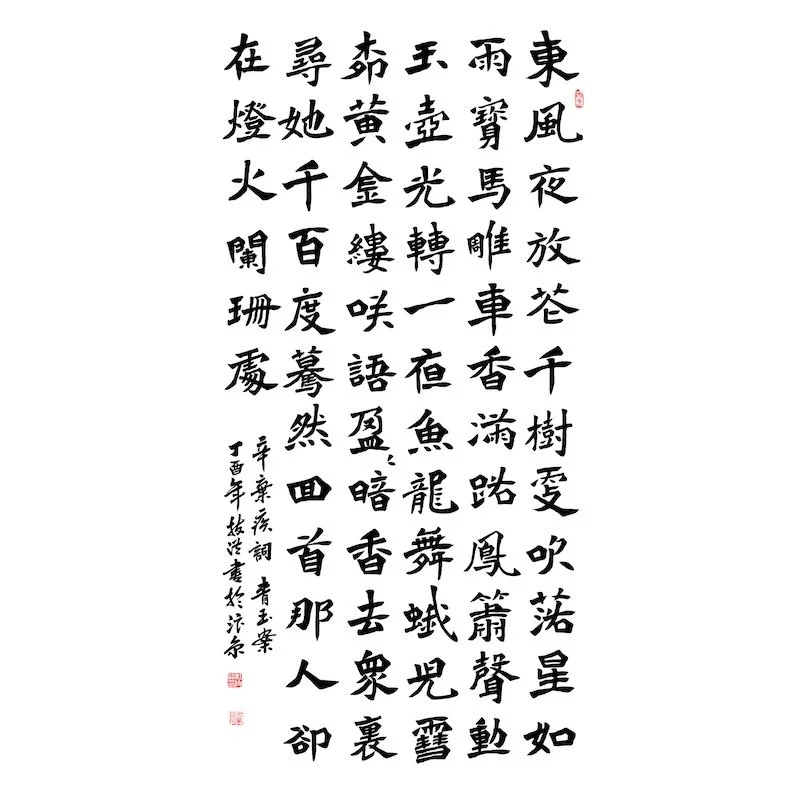 東風夜放花千樹更吹落星如
雨寶馬雕車香滿路鳳簫聲動
玉壺光轉一夜魚龍舞蛾兒雪
柳黃金縷咲語盈〻暗香去衆裏
尋她千百度驀然回首那人卻
在燈火闌珊處
辛棄疾詞 青玉案
丁酉年 書於汴京